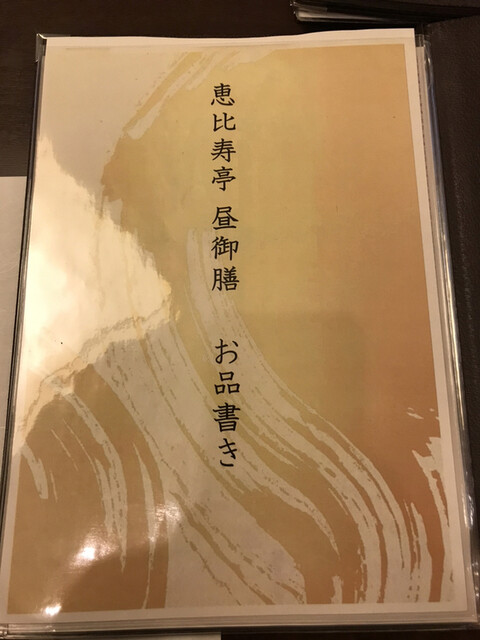 恵比寿亭 昼御膳 お品書き